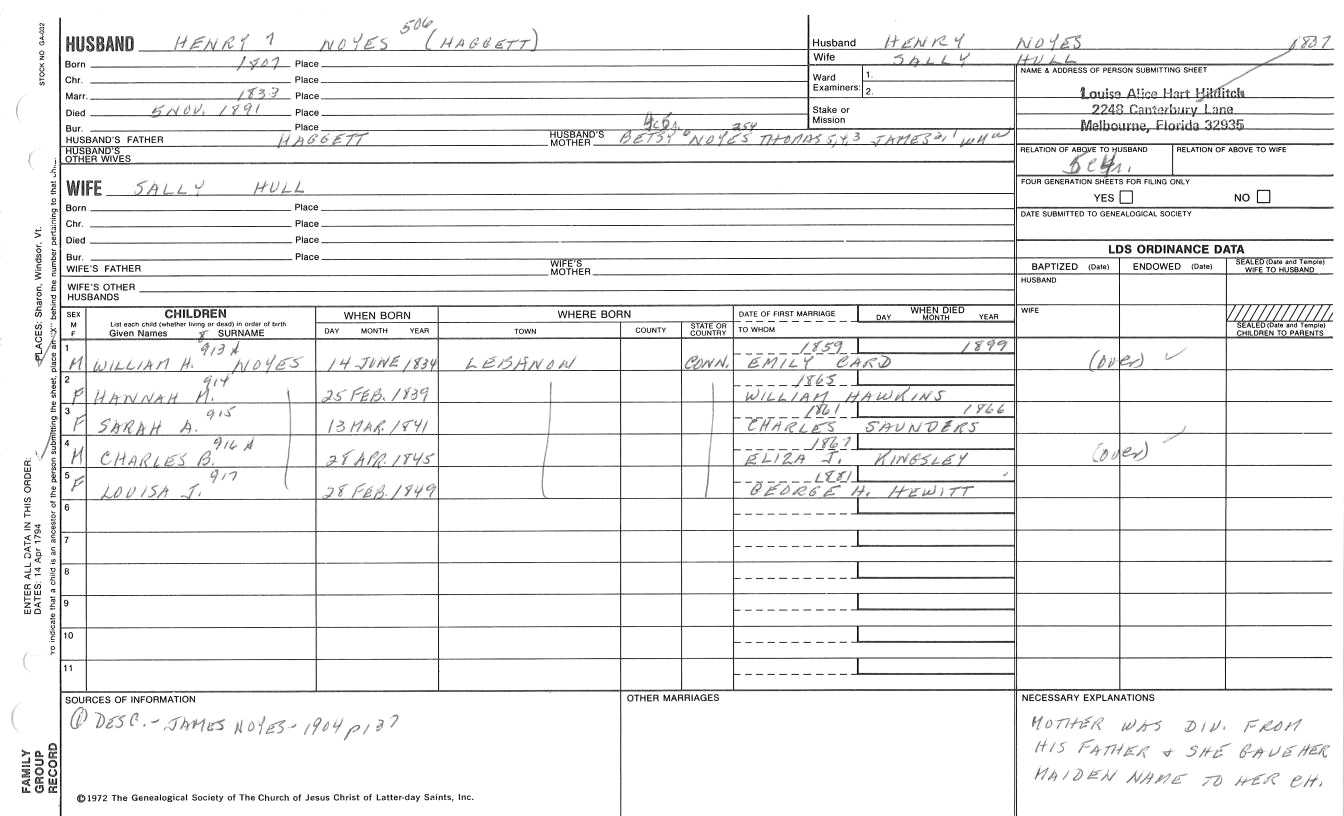 STOCK NO GA-032
HUSBAND HENRY 7 NOYES 506 (HAGGETT)
Born 1807 Place
Chr. Place
Marr. 1833 Place
Died 5 NOV. 1891 Place
Bur. Place
HUSBAND'S FATHER HAGGETT HUSBAND'S MOTHER BETSY 6 NOYES 254 THOMAS 5,4,3 JAMES 2,1 WM
HUSBAND'S OTHER WIVES
WIFE SALLY HULL
Born Place
Chr. Place
Died Place
Bur. Place
WIFE'S FATHER WIFE'S MOTHER
WIFE'S OTHER HUSBANDS
Husband HENRY NOYES 1807
Wife SALLY HULL
Ward Examiners: 1.
2.
Stake or Mission
NAME & ADDRESS OF PERSON SUBMITTING SHEET
Louise Alice Hart Hilditch
2248 Canterbury Lane
Melbourne, Florida 32935
RELATION OF ABOVE TO HUSBAND RELATION OF ABOVE TO WIFE
FOUR GENERATION SHEETS FOR FILING ONLY
YES NO
DATE SUBMITTED TO GENEALOGICAL SOCIETY
LDS ORDINANCE DATA
BAPTIZED (Date) ENDOWED (Date) SEALED (Date and Temple) WIFE TO HUSBAND
HUSBAND
WIFE
SEALED (Date and Temple) CHILDREN TO PARENTS
SEX M F
CHILDREN
List each child (whether living or dead) in order of birth
Given Names SURNAME
WHEN BORN
DAY MONTH YEAR
WHERE BORN
TOWN COUNTY STATE OR COUNTRY
DATE OF FIRST MARRIAGE
TO WHOM
WHEN DIED
DAY MONTH YEAR
1 M WILLIAM H. 8 913 A NOYES 14 JUNE 1834 LEBANON CONN. 1859 EMILY CARD 1899 (over)
2 F HANNAH M. 914 25 FEB. 1839 1865 WILLIAM HAWKINS
3 F SARAH A. 915 13 MAR. 1841 1861 CHARLES SAUNDERS 1866
4 M CHARLES B. 916 A 28 APR. 1845 1867 ELIZA J. KINGSLEY (over)
5 F LOUISA J. 917 28 FEB. 1849 1881 GEORGE H. HEWITT
6
7
8
9
10
11
SOURCES OF INFORMATION
① DESC. - JAMES NOYES - 1904 p 137
OTHER MARRIAGES
NECESSARY EXPLANATIONS
MOTHER WAS DIV. FROM
HIS FATHER & SHE GAVE HER
MAIDEN NAME TO HER CH.
©1972 The Genealogical Society of The Church of Jesus Christ of Latter-day Saints, Inc.
FAMILY GROUP RECORD
ENTER ALL DATA IN THIS ORDER:
DATES: 14 Apr 1794
PLACES: Sharon, Windsor, Vt.
To indicate that a child is an ancestor of the person submitting the sheet, place an "X" behind the number pertaining to that